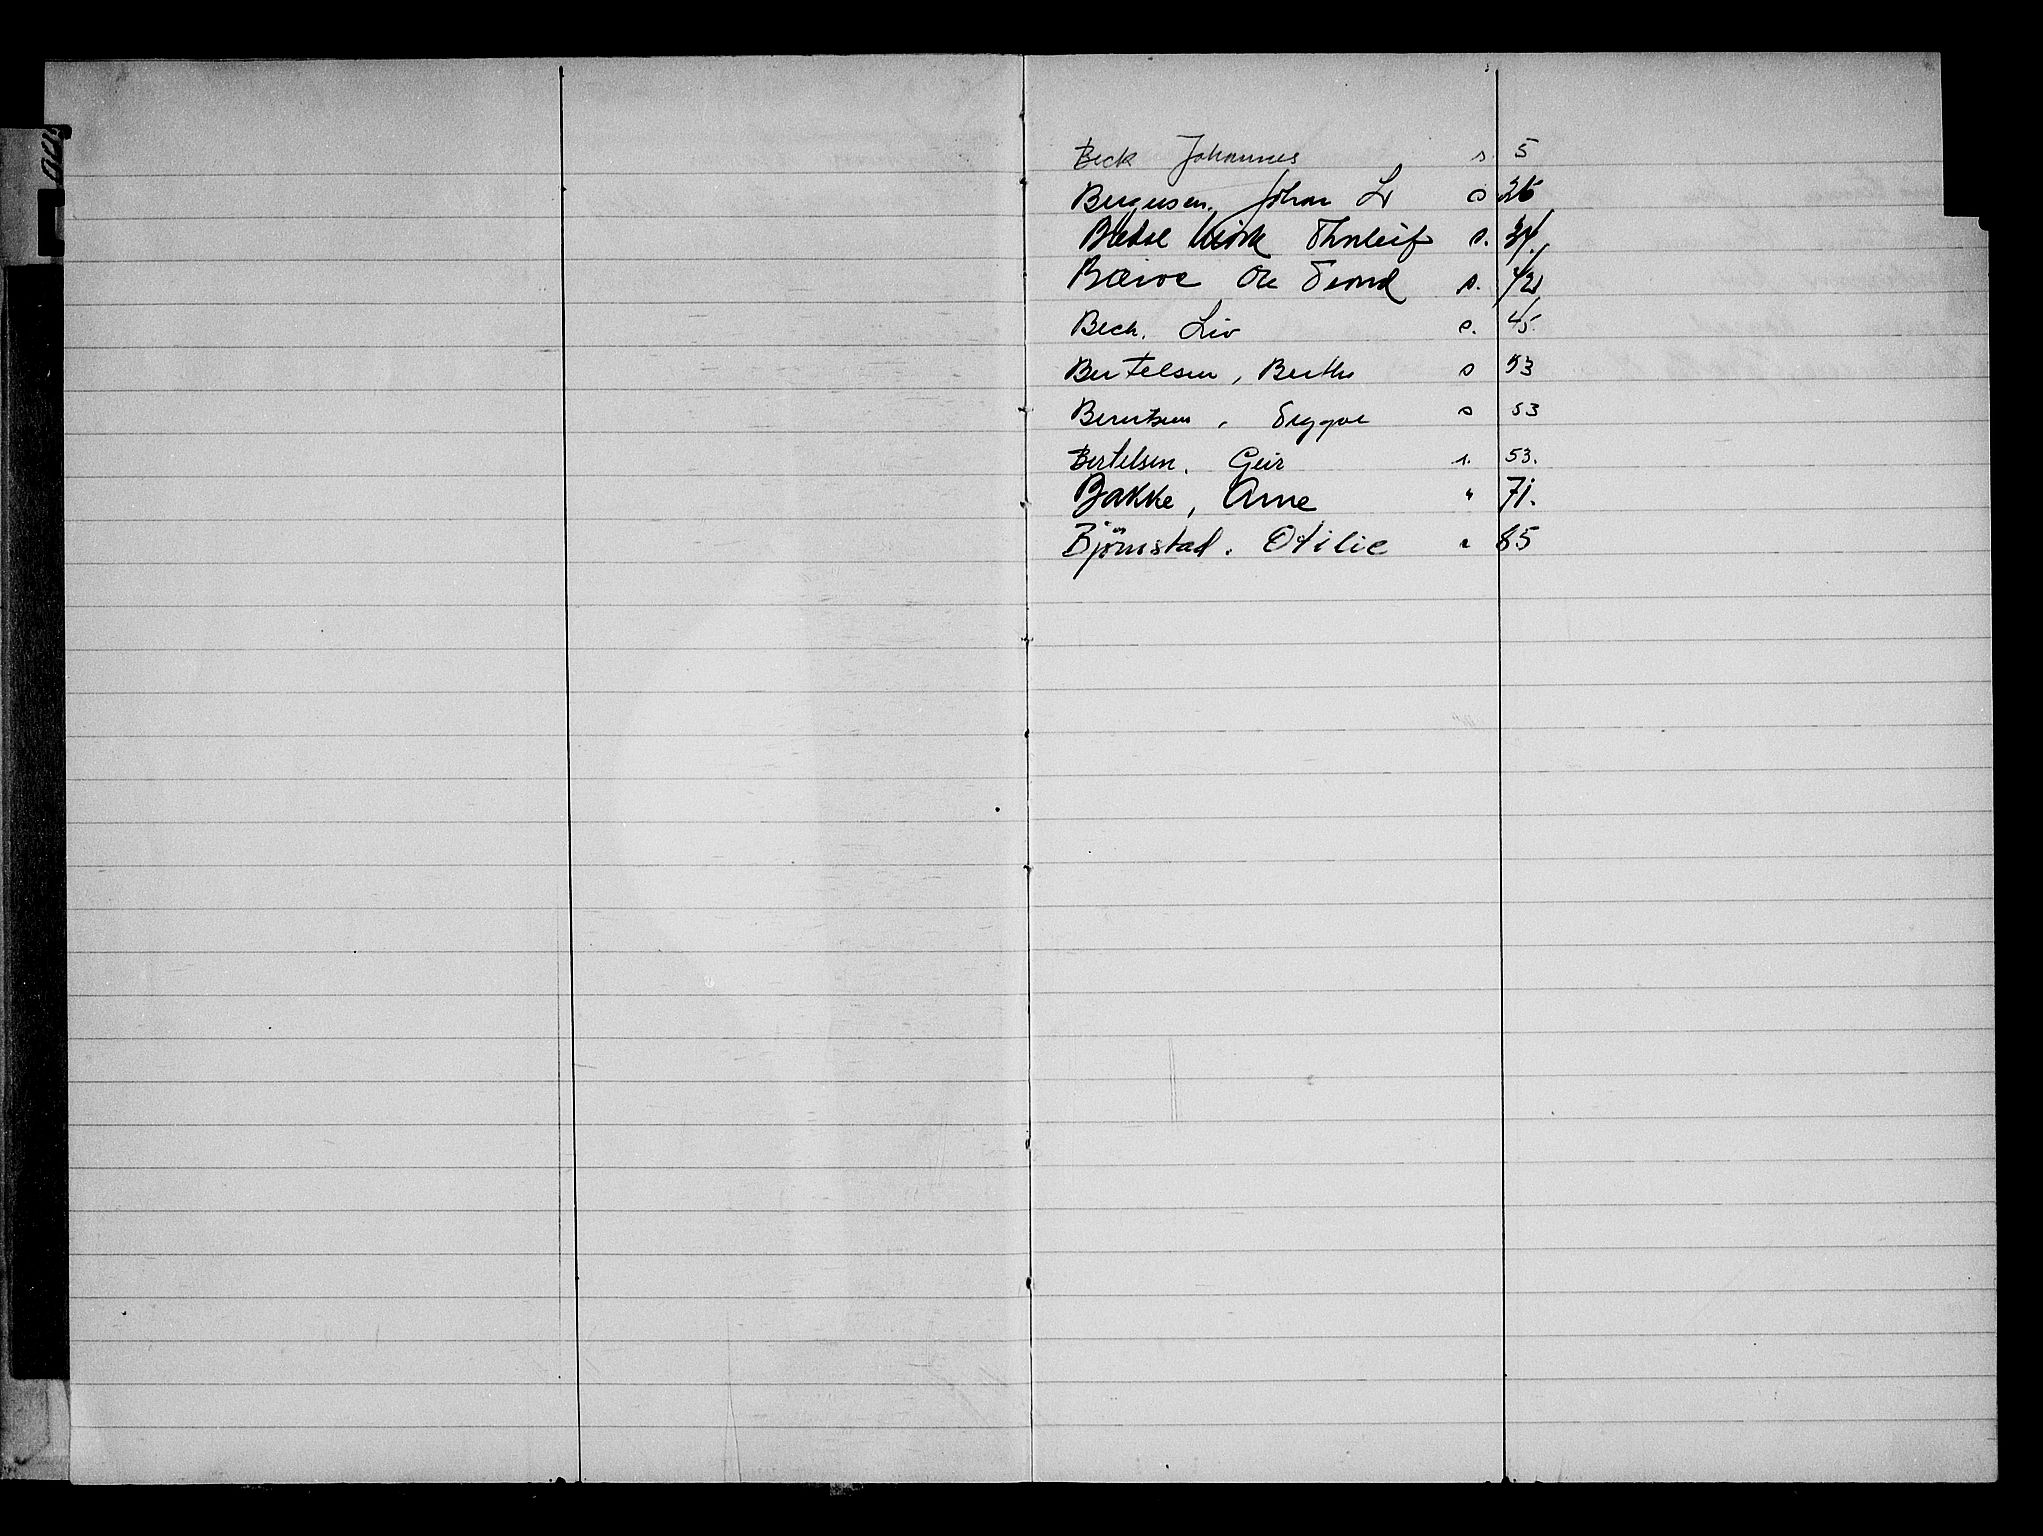 Beck Johannes s. 5
Bergersen, Johan Lr s 26
Thorleif s. 34.
Bærøe Ole Trond s. 42
Bech, Liv s. 45.
Bertelsen, Berthe s 53
Berntsen, Trygve s 53
Bertelsen, Geir s. 53.
Bakke, Arne " 71.
Björnstad. Otilie " 85